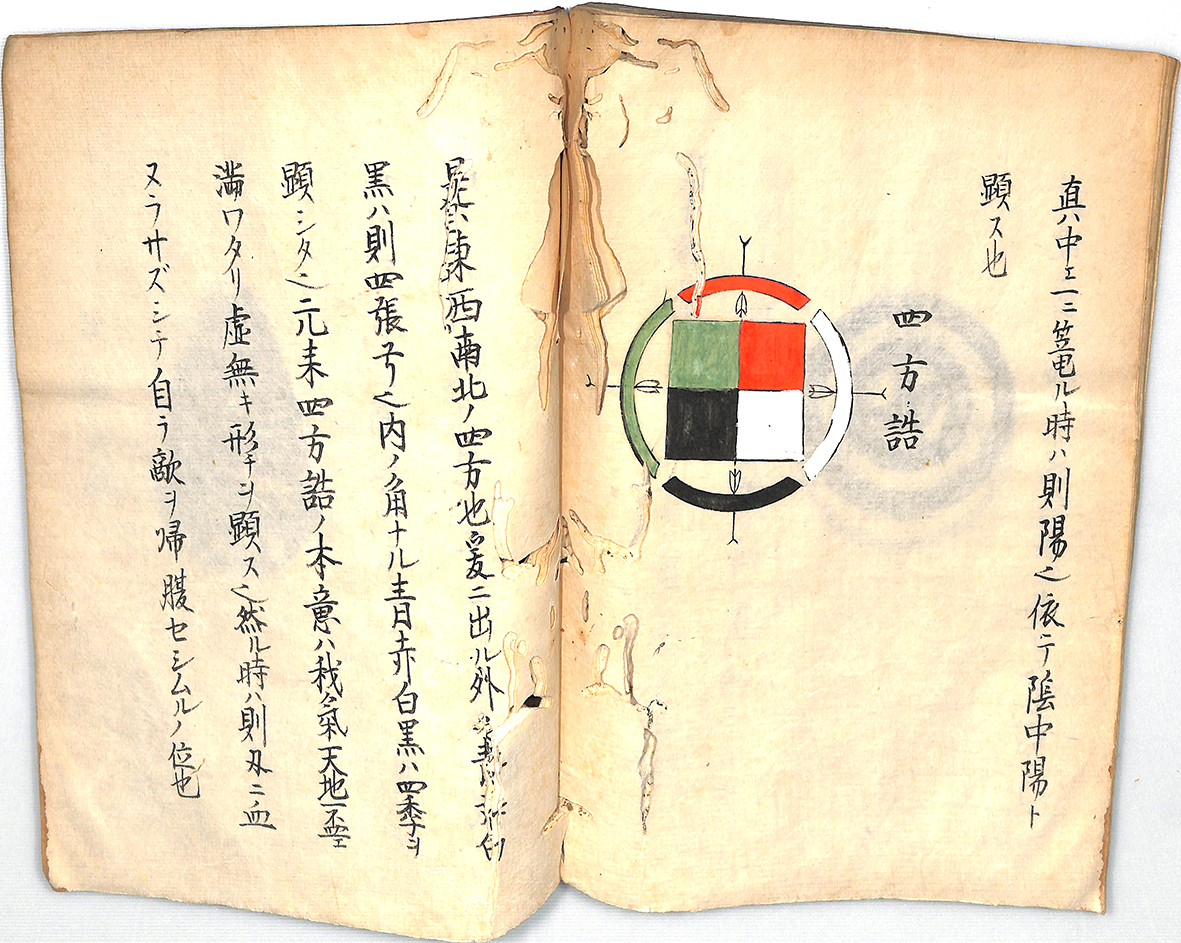 真ハ中エ一ニ篭ル時ハ則陽也依テ陰中陽ト
顕ス也
四方詰
是ハ東西南北ノ四方也爰ニ出ル外
黒ハ則四張弓也内ノ角ナル青赤白黒ハ四季ヲ
顕シタ也元来四方詰ノ本意ハ我氣天地一盃エ
満ワタリ虚無キ形チヲ顕ス也然ル時ハ則刃ニ血
ヌラサズシテ自ラ敵ヲ帰腹セシムルノ位也